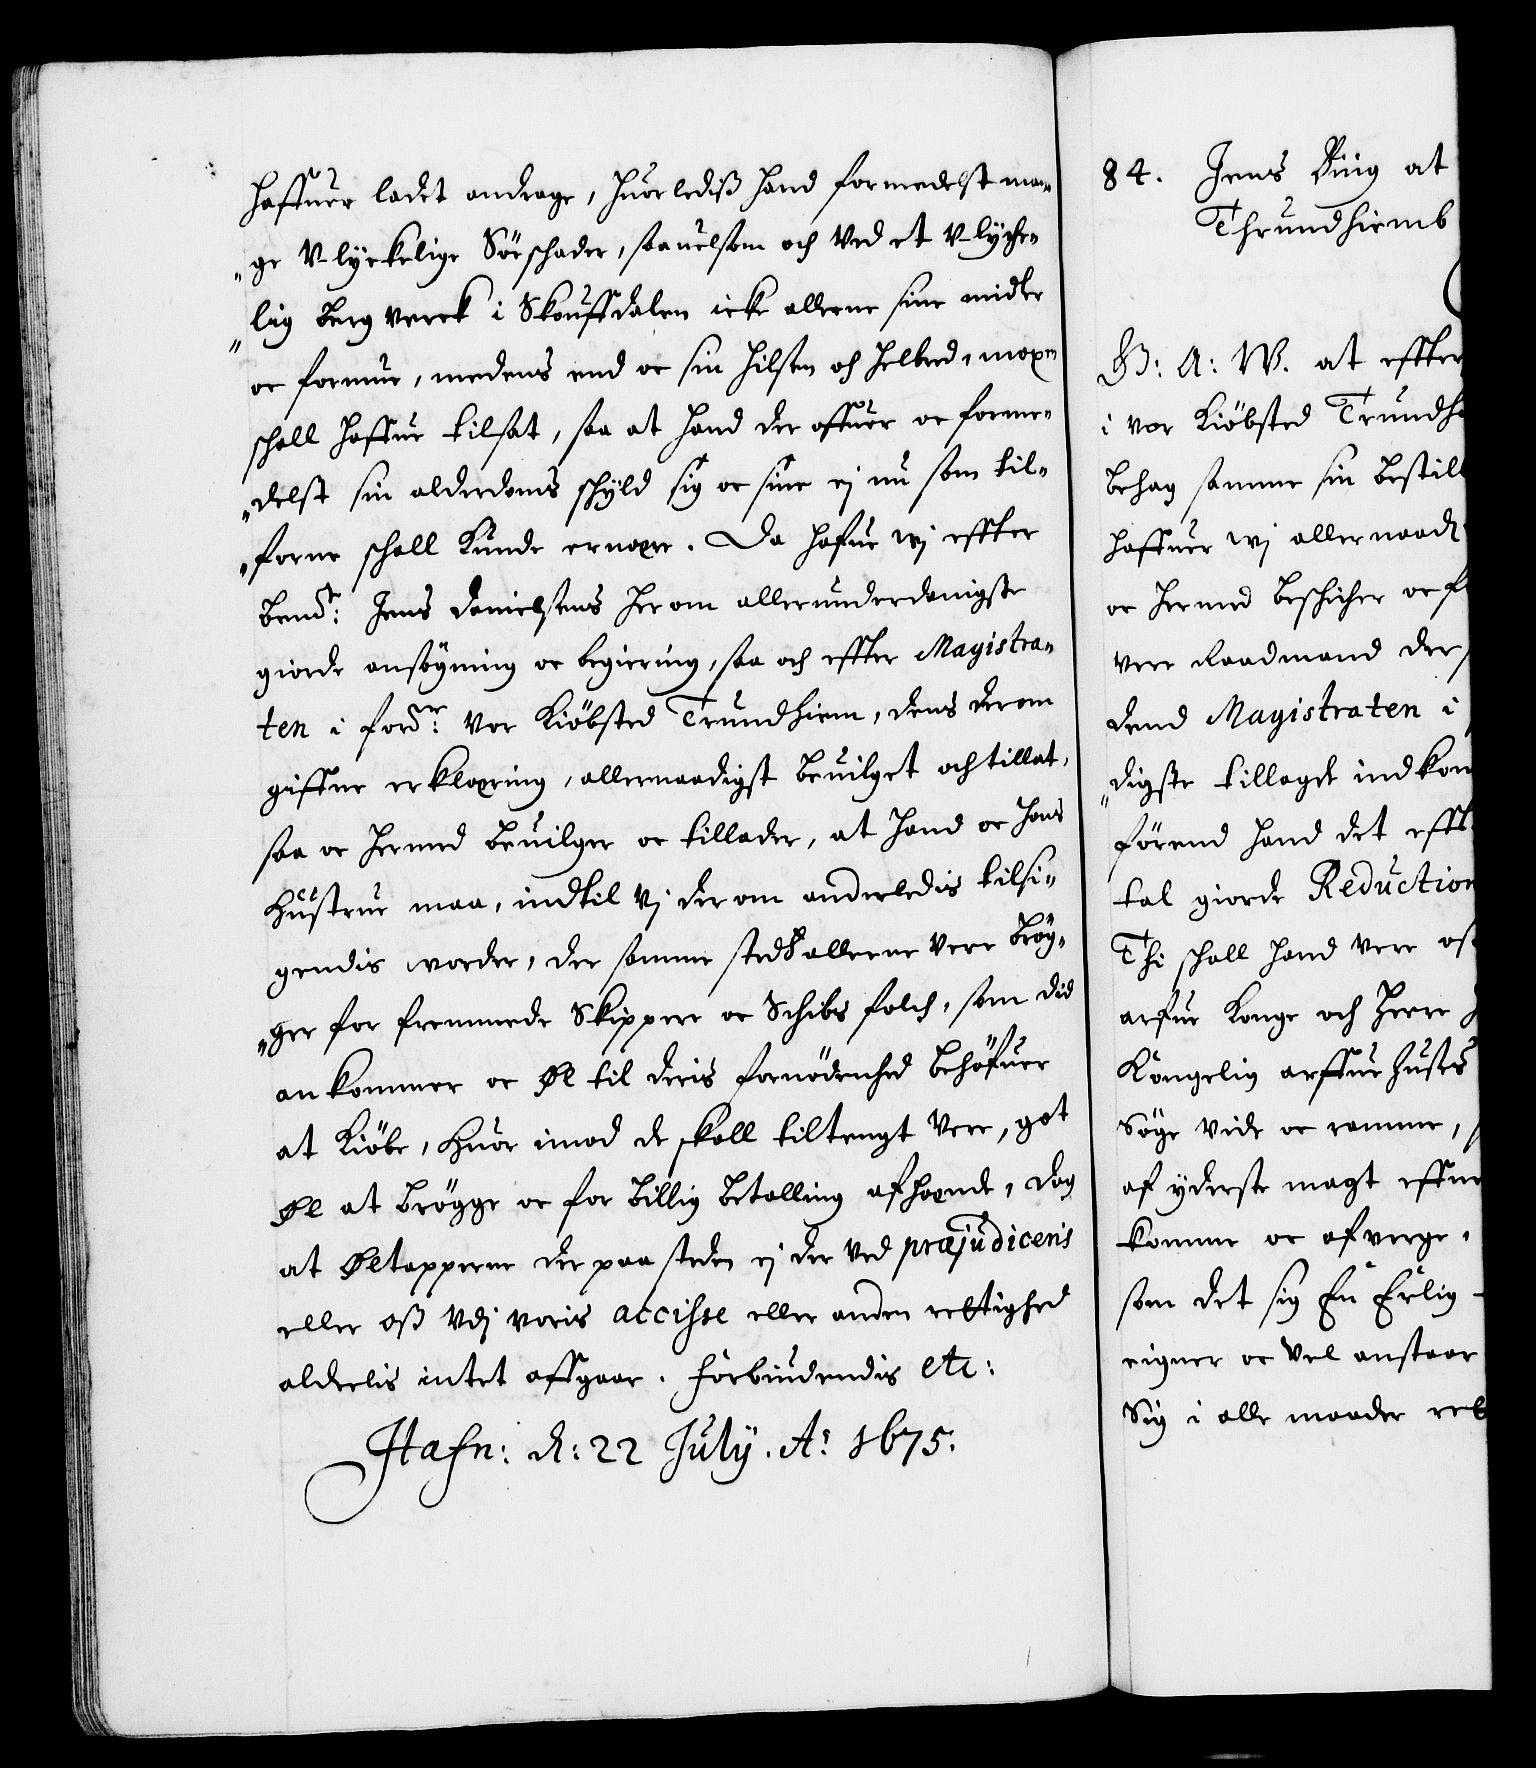 haffuer ladet andrage, huorlediß hand formedelst man=
"ge Vlyckelige Söeschader, saauelsom och Ved et Vlycke=
"lig berg verck i Skouffdalen icke alleene sine midler
oc formue, medens end oc sin hilsen och helbred, mexen
schall haffue tilsat, saa at hand der offuer oc forme=
"delst sin alderdoms schyld sig oc sine ej nu som til=
"forne schall kunde ernære. Da hafue wj effter
bemte: Jens Danielssens herom allerunderdanigste
giorde ansögning oc begiering, saa och effter Magistra=
ten i fordne: Vor Kiöbsted Trundhiem, deris derom
giffne erklæring, allernaadigst beuilget och tillat,
saa oc hermed beuilger oc tillader, at hand oc hans
Hustrue maa, indtil Vj derom anderledis tilsi=
gendis worder, der samme steds alleene vere Bröy=
"ger for fremmede Skippere oc Schibs folck, som did
ankommer oc Øl til deris fornödenhed behöfuer
at Kiöbe, Huor imod de skall tiltengt Vere, got
Øl at brögge oc for billig betalling afhænde, dog
at Øltapperne der paa steden ej der Ved præjudiceris
eller oß Udj voris accisse eller anden rettighed
aldelis intet affgaar. Forbiudendis etc:
Hafn: d: 22 July. Ao: 1675.
84. Jens Bing at
Thrundhiemb
G: A: W. at effter
i vor Kiöbsted Trundh
behag samme sin bestill
haffuer wj allernaad
oc hermed beschicher oc f
vere Raadmand der
dend Magistraten i
"digste tillagde indkom
förend hand det efft
tal giorde Reduction
Thi schall hand vere os
arfue Konge och Herre
Kongelig arffue Huses
Söge vide oc ramme,
af yderste magt effne
komme oc afverge,
som det sig En Erlig
eigner oc Vel anstaar
Sig i alle maader ret